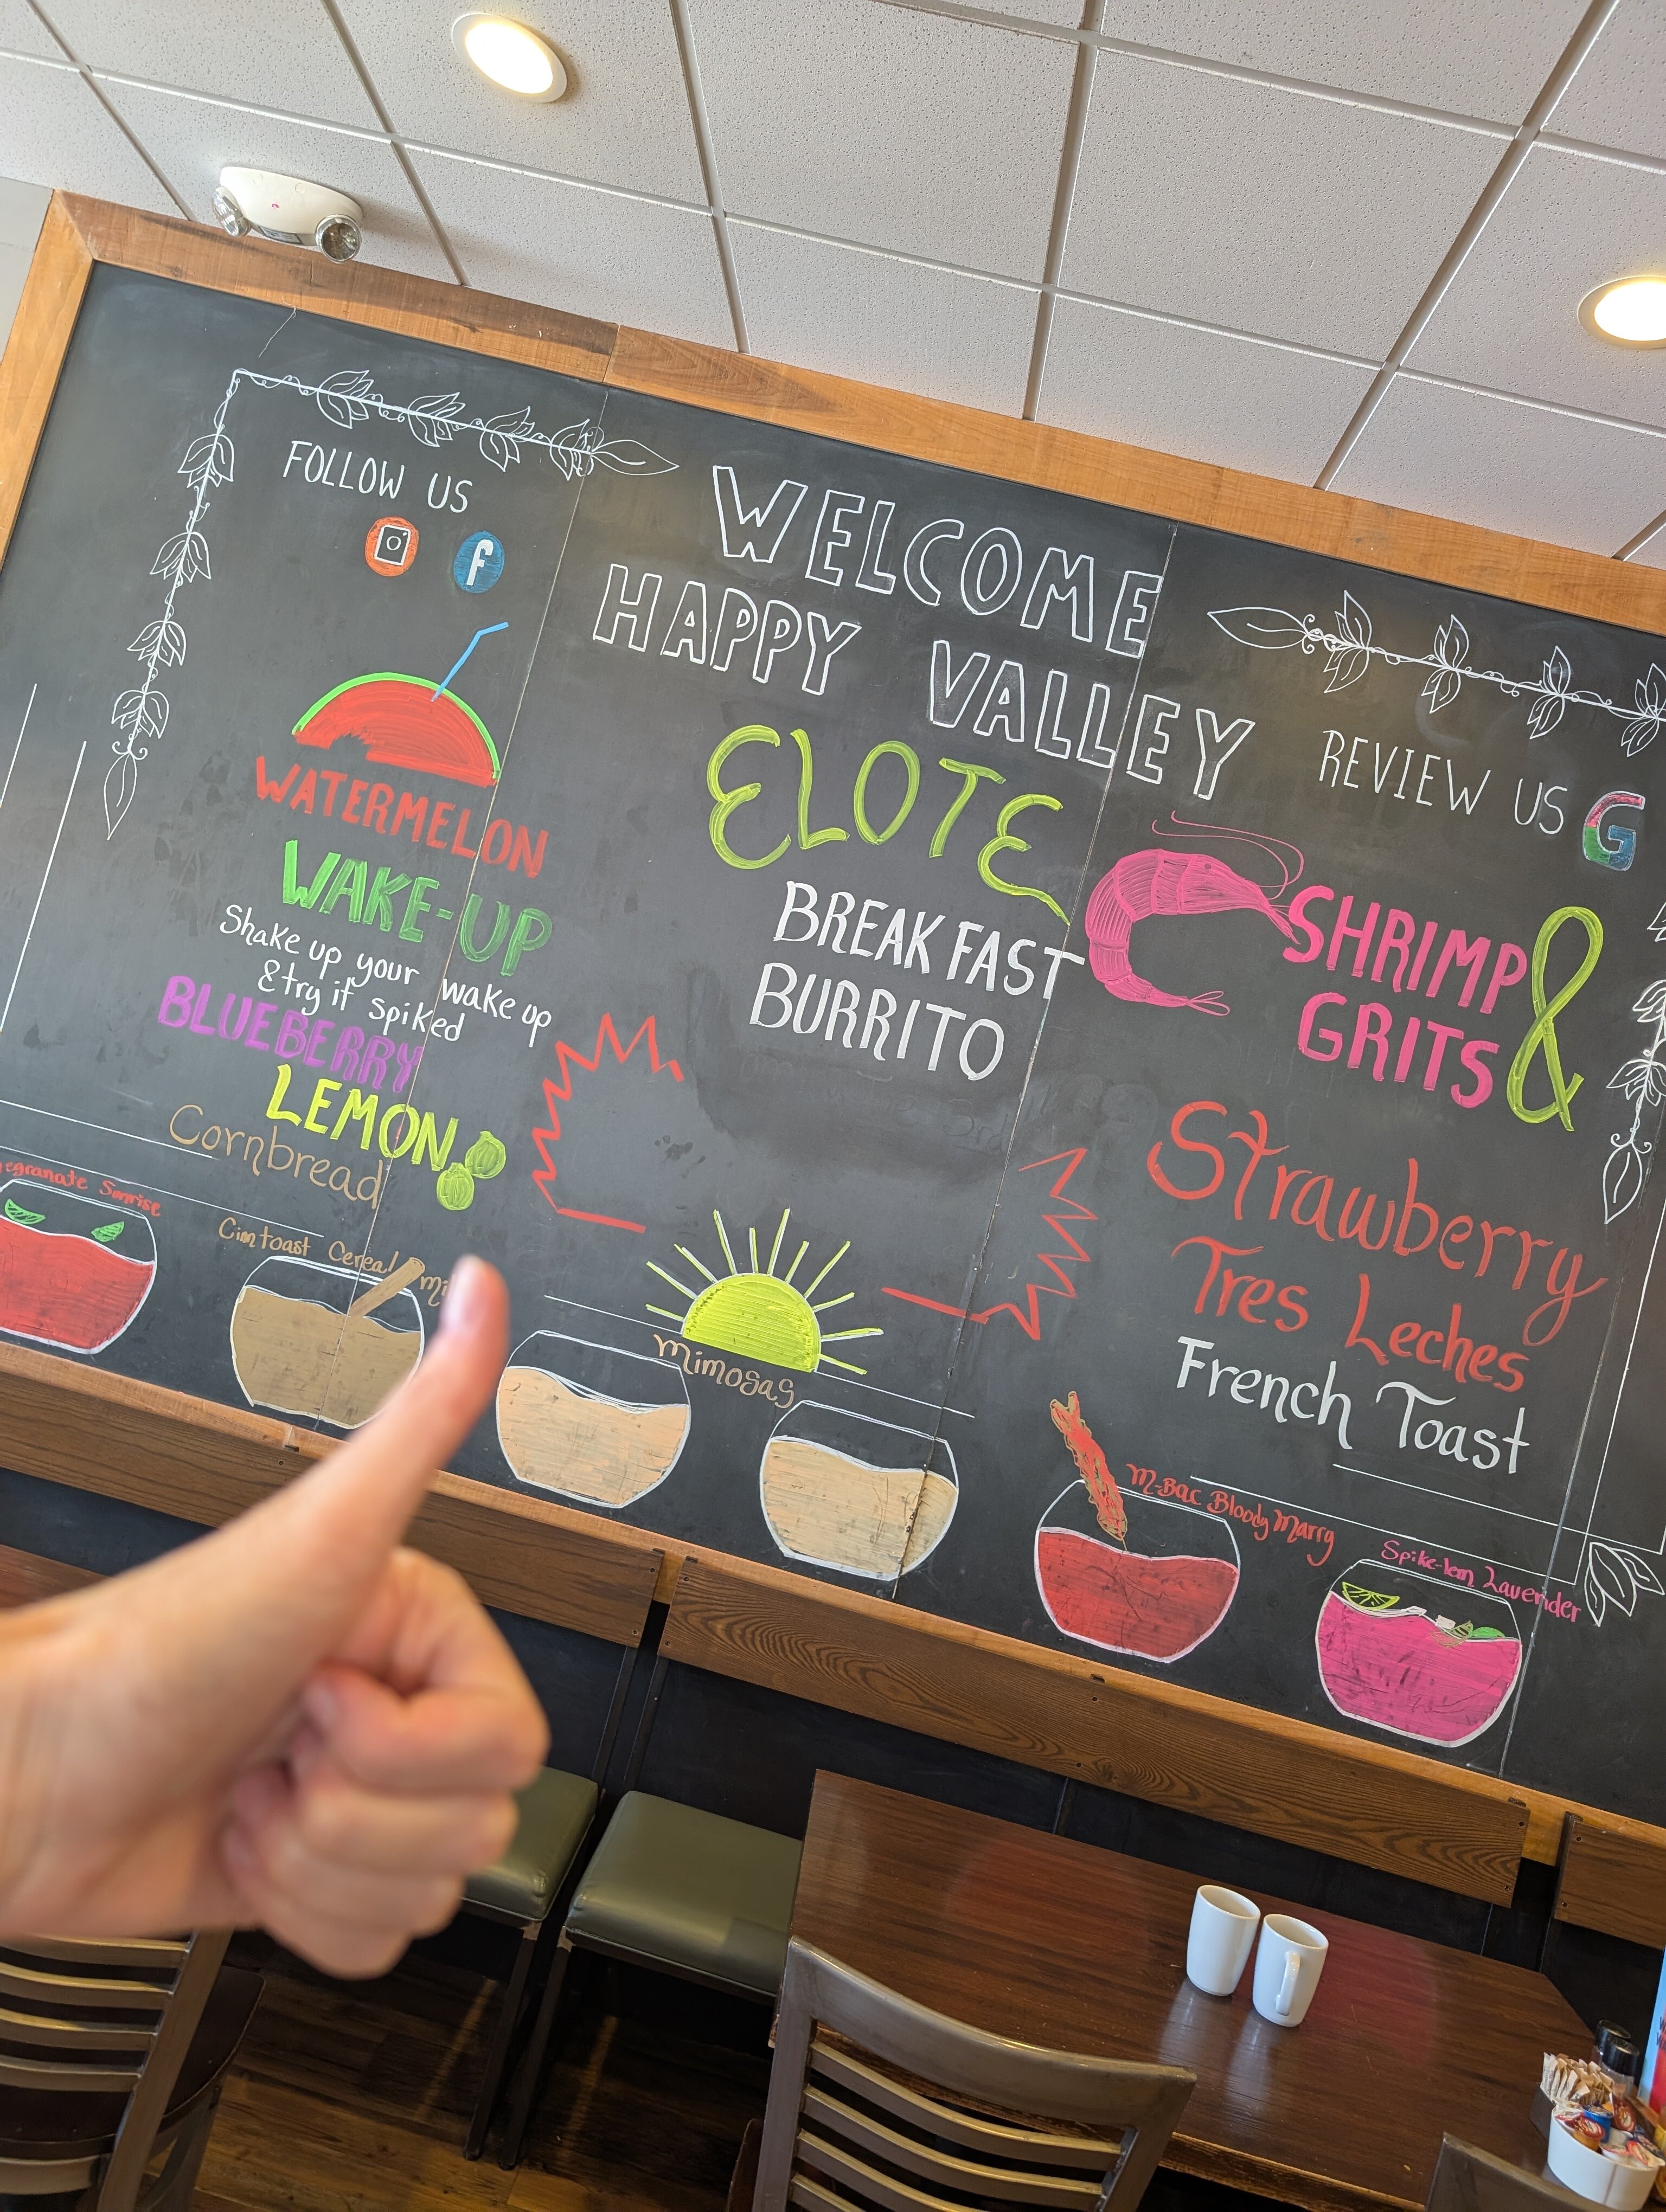 FOLLOW US
f
WELCOME
HAPPY VALLEY
REVIEW US G
WATERMELON
WAKE-UP
Shake up your wake up
& try it spiked
BLUEBERRY
LEMON
Cornbread
ELOTE
BREAKFAST
BURRITO
SHRIMP &
GRITS
Strawberry
Tres Leches
French Toast
Sunrise
Cinntoast Cereal
Mimosas
M-Bac Bloody Marry
Spike-lem Lavender